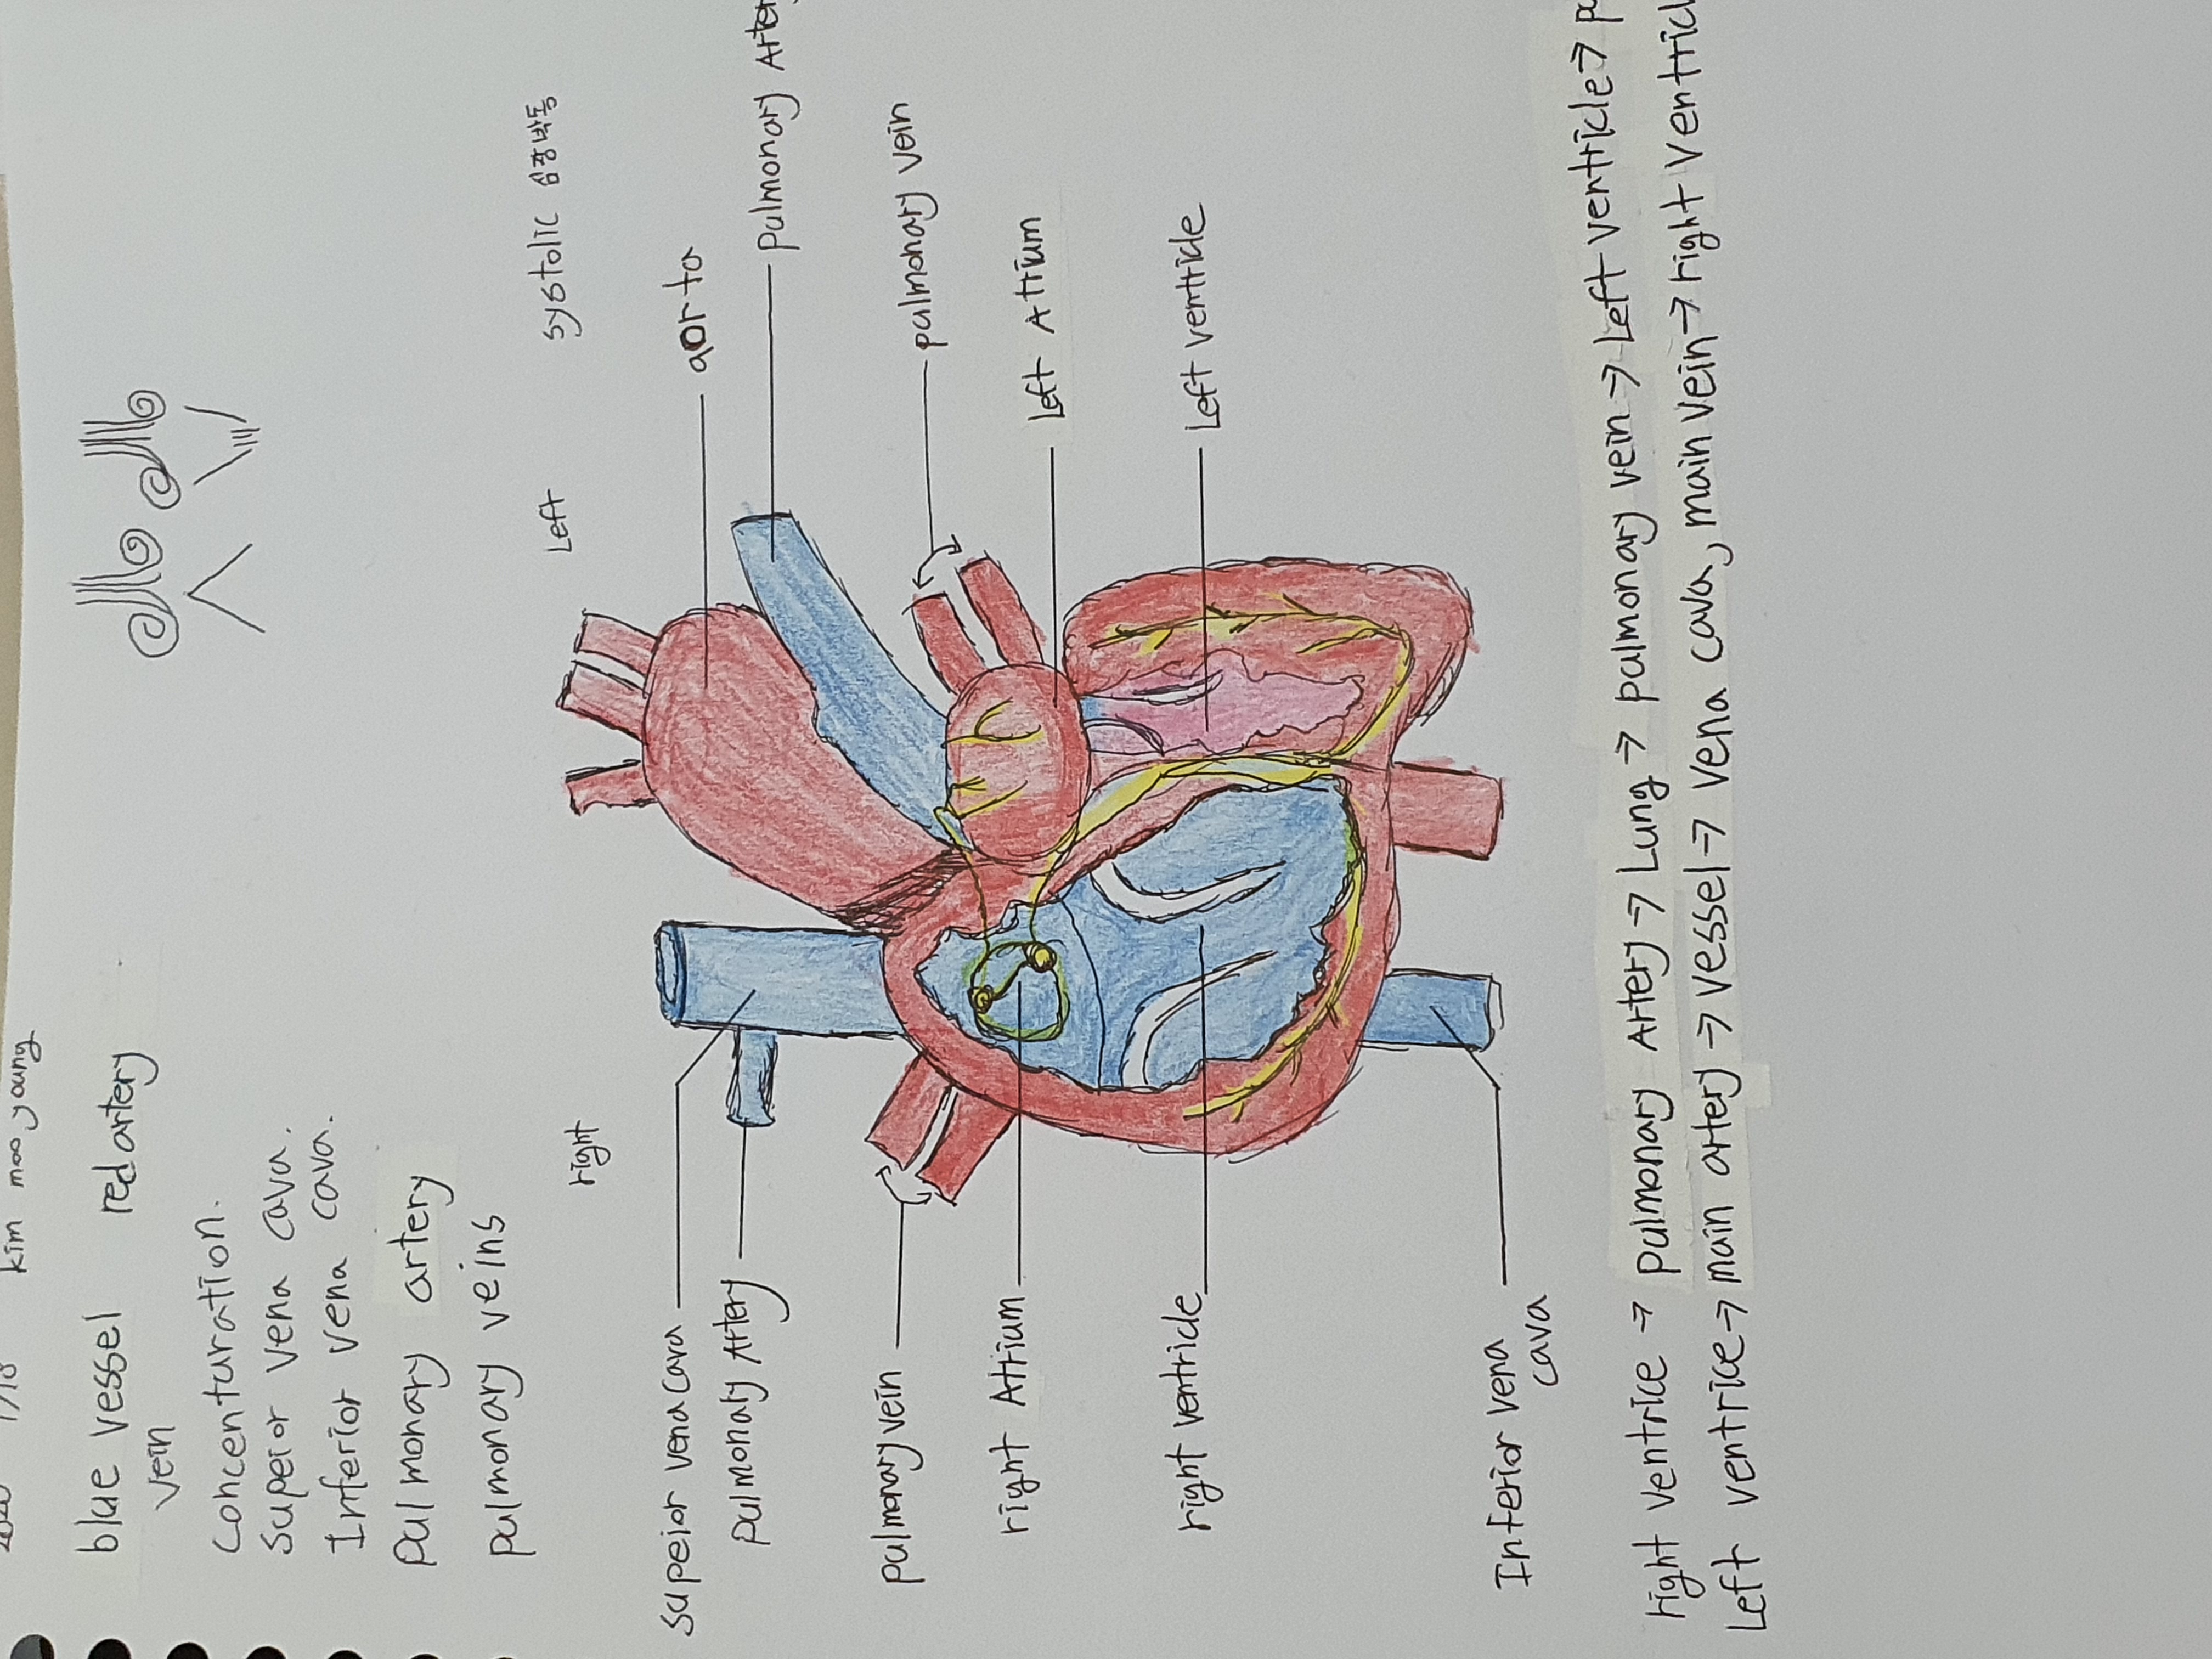 kim moo young
blue vessel red artery
vein
Concenturation.
Supeior vena cava.
Inferior vena cava.
pulmonary artery
pulmonary veins
right Left systolic 심장박동
Supeior vena cava
pulmonary Artery
pulmonary vein
right Atrium
right ventricle
Inferior vena
cava
aorta
pulmonary Arter
pulmonary vein
Left Atrium
Left ventricle
right ventrice → pulmonary Artery → Lung → pulmonary vein → Left ventricle →
Left ventrice → main artery → vessel → vena cava, main vein → right ventricl